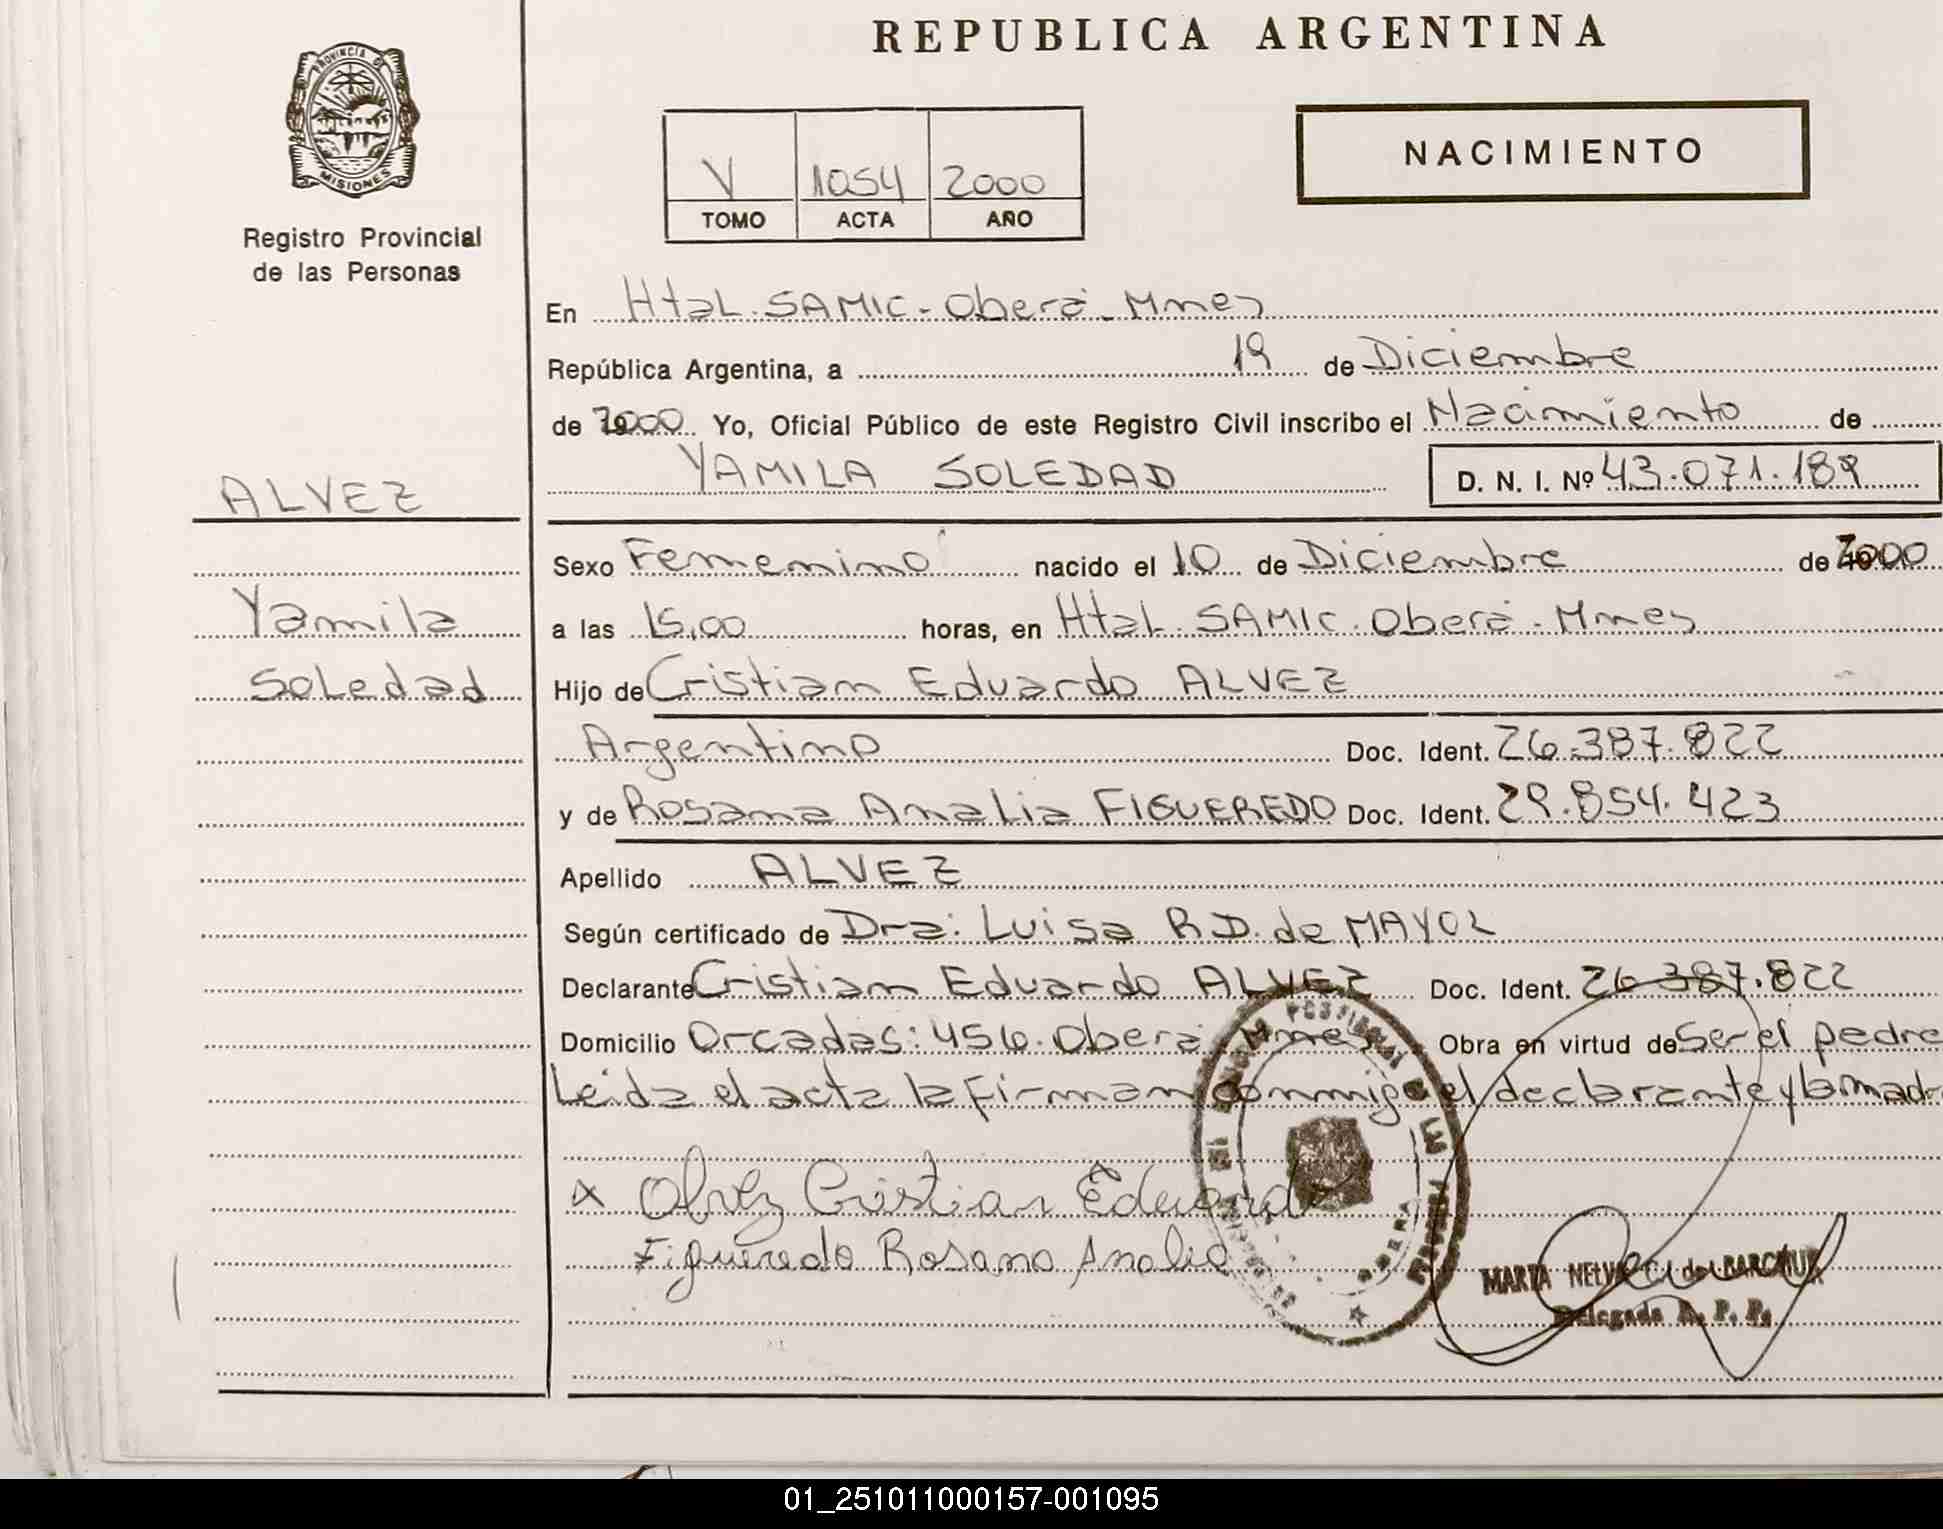 REPUBLICA ARGENTINA
PROVINCIA DE
MISIONES
Registro Provincial
de las Personas
V 1054 2000
TOMO ACTA AÑO
NACIMIENTO
En Htal. SAMIC - Oberá - Mnes
República Argentina, a 19 de Diciembre
de 2000 Yo, Oficial Público de este Registro Civil inscribo el Nacimiento de
YAMILA SOLEDAD D. N. I. Nº 43.071.189
ALVEZ
Yamila
Soledad
Sexo Femenino nacido el 10 de Diciembre de 2000
a las 15,00 horas, en Htal. SAMIC. Oberá - Mnes
Hijo de Cristian Eduardo ALVEZ
Argentino Doc. Ident. 26.387.822
y de Rosana Analia FIGUEREDO Doc. Ident. 29.854.423
Apellido ALVEZ
Según certificado de Dra: Luisa R.D. de MAYOL
Declarante Cristian Eduardo ALVEZ Doc. Ident. 26.387.822
Domicilio Orcadas: 456. Oberá Mnes Obra en virtud de Ser el padre
Leida el acta la firman conmigo el declarante y la madr
x Alvez Cristian Eduardo
Figueredo Rosana Analia
MARTA de BARCHUK
Delegada R. P. P.
01_251011000157-001095